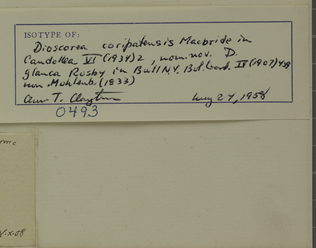 ISOTYPE OF:
Dioscorea coripatensis Macbride in
Candollea VI (1934) 2, nom. nov. D.
glauca Rusby in Bull N.Y. Bot. Gard. IV (1907)
non Muhlenb (1833)
Ann T. Clayton May 27, 1958
0493
V-X-58